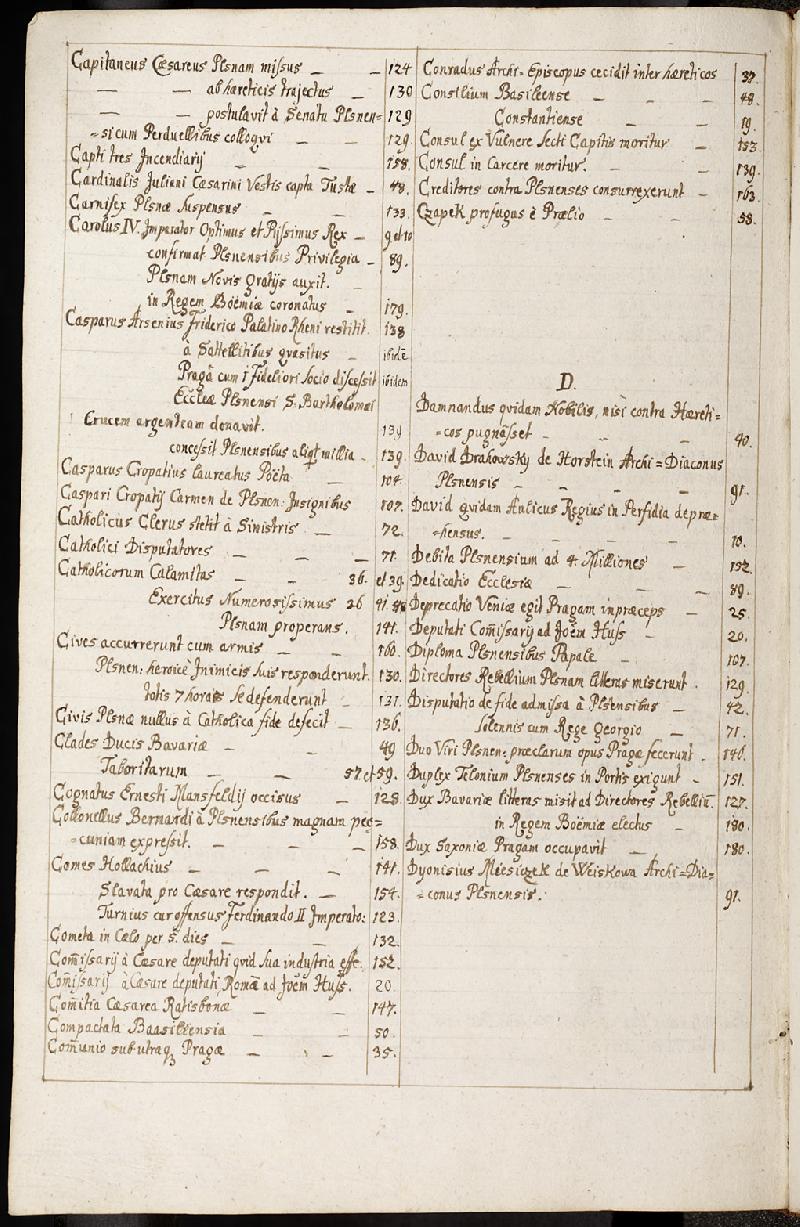 Capitaneus Cæsareus Plsnam missus — — 124
— — ab hæreticis trajectus — 130
— — postulavit à Senatu Plsnen= 129
=si cum Perduellibus colloqvi — — 129.
Capti tres Incendiarij — — 158.
Cardinalis Juliani Cæsarini Vestis capta Tustæ — 48.
Carnifex Plsnæ suspensus — — 133.
Carolus IV. Imperator Optimus et Pijssimus Rex — 9 et 10
confirmat Plsnensibus Privilegia — 89.
Plsnam Novis gratijs auxit.
in Regem Boëmiæ coronatus — 179.
Casparus Arsenius Friderico Palatino Rheni restitit. 138
à Sattellitibus qvæsitus — ibidē
Pragâ cum 1 Fideliori socio discessit ibidem
Eccleæ Plsnensi S. Bartholomæi
Crucem argenteam donavit. 139
concessit Plsnensibus aliqt millia — 139.
Casparus Cropatius laureatus Poëta — 104.
Caspari Cropatij Carmen de Plsnen: Insignibus 107.
Catholicus Clerus stetit à Sinistris — 72.
Catholici Disputatores — — — 71.
Catholicorum Calamitas — — 36. et 39.
Exercitus Numerosissimus 26 41
Plsnam properans. 141.
Cives accurrerunt cum armis — — 160.
Plsnen: heroicè Inimicis suis responderunt. 130.
totis 7 horis se defenderunt — 131.
Civis Plsnæ nullus à Catholica fide defecit — 136.
Clades Ducis Bavariæ — — 49
Taboritarum — — 57 et 59.
Cognatus Ernesti Mansfeldij occisus — 128.
Collonellus Bernardi à Plsnensibus magnam pec=
=cuniam expressit. — — — 158.
Comes Hollachius — — — 141.
Slavata pro Cæsare respondit. — 154.
Turnius cur offensus Ferdinando II Imperato: 123.
Cometa in Cælo per 5. dies — — 132.
Com̄issarij à Cæsare deputati qvid sua industria 152.
Com̄issarij à Cæsare deputati, Romā ad Joēm Huss. 20.
Com̄itia Cæsarea Ratisbonæ — 147.
Compactata Baasileensia — — 50.
Com̄unio sub utraq; Pragæ — — 35.
Conradus Archi=Episcopus cecidit inter hæreticos 37.
Consilium Basileense — — — 48.
Constantiense — — 19.
Consul ex Vulnere secti Capitis moritur — 153
Consul in Carcere moritur. — — 139.
Creditores contra Plsnenses consurrexerunt — 163.
Czapek profugus è Prælio — — 58.
D.
Damnandus qvidam Nobilis, nisi contra Hæreti=
=cos pugnâsset — — — 40.
David Drahowsky de Horstein Archi=Diaconus
Plsnensis — — — 91.
David qvidam Aulicus Regius in Perfidia depræ=
=hensus. — — — 10.
Debita Plsnensium ad 4. Milliones — 152.
Dedicatio Ecclesiæ — — — 89.
Deprecatio Veniæ egit Pragam in præceps — 25
Deputati Com̄issarij ad Joēm Huss — 20.
Diploma Plsnensibus Papale — — 107.
Directores Rebellium Plsnam litteras miserunt. 129
Disputatio de fide admissa à Plsensibus — 42.
solennis cum Rege Georgio — 71.
Duo Viri Plsnen: præclarum opus Pragæ fecerunt. 146.
Duplex Telonium Plsnenses in Portis exigunt — 151.
Dux Bavariæ litteras misit ad Directores Rebelliū. 127.
in Regem Boëmiæ electus — 180.
Dux Saxoniæ Pragam occupavit — 180.
Dyonisius de Weiskowa Archi=Dia=
=conus Plsnensis. — 91.